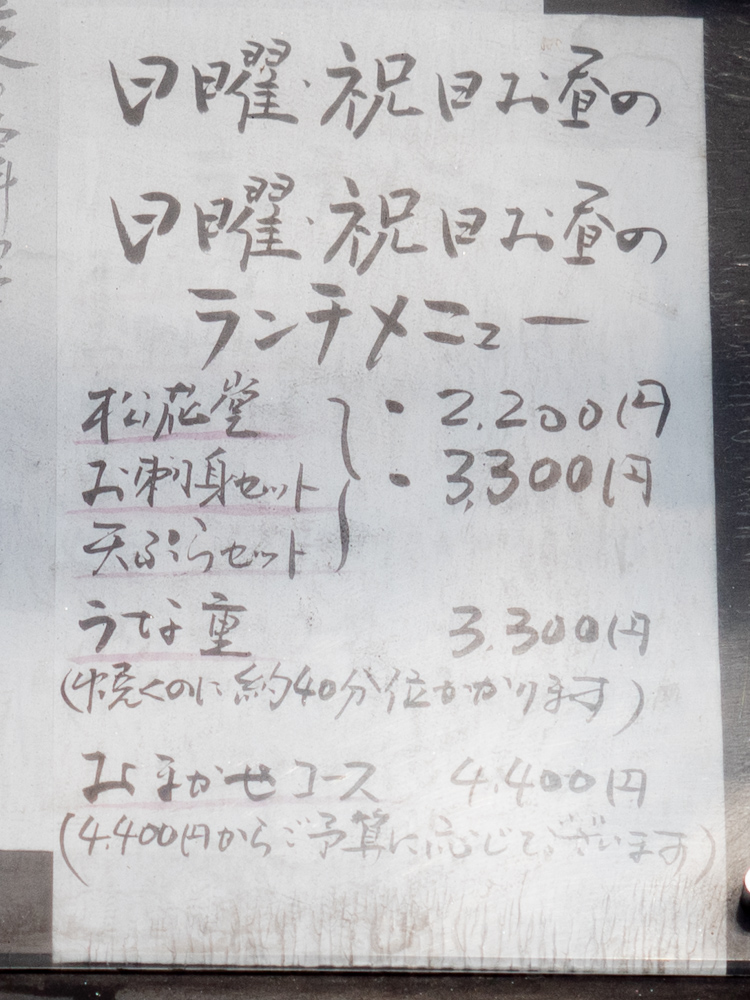 日曜・祝日お昼の
日曜・祝日お昼の
ランチメニュー
松花堂
お刺身セット
天ぷらセット
・2,200円
・3,300円
うな重 3,300円
(焼くのに約40分位かかります)
おまかせコース 4,400円
(4,400円からご予算に応じてございます)